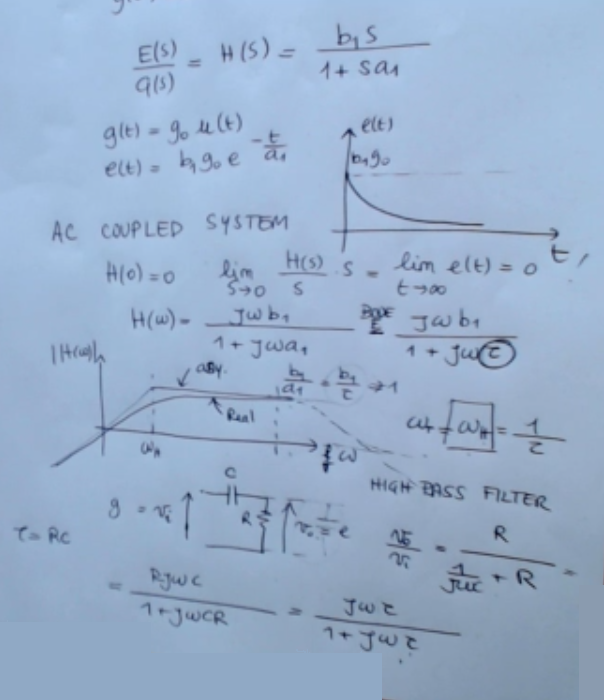 E(s)/G(s) = H(s) = b₁s / 1 + sa₁
g(t) = g₀ u(t)
e(t) = b₁g₀ e -t/a₁
e(t)
b₁g₀
t
AC COUPLED SYSTEM
H(0) = 0 lim s→0 H(s)/s · s = lim t→∞ e(t) = 0
H(ω) = jωb₁ / 1 + jωa₁ BODE jωb₁ / 1 + jωτ
|H(ω)| asy. b₁/a₁ = b₁/τ → 1
Real
ω_H = 1/τ
ω_H ω
HIGH PASS FILTER
C
g = vᵢ R v₀ = e
τ = RC v₀/vᵢ = R / 1/jωC + R =
= RjωC / 1 + jωCR = jωτ / 1 + jωτ